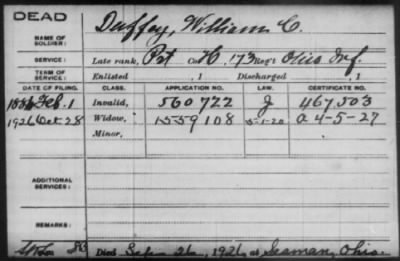 DEAD
NAME OF SOLDIER: Duffey, William C.
SERVICE: Late rank, Pvt Co. H, 173 Reg't Ohio Inf.
TERM OF SERVICE: Enlisted , 1 Discharged , 1
DATE OF FILING. CLASS. APPLICATION NO. LAW. CERTIFICATE NO.
1886 Feb. 1 Invalid, 560722 J 467503
1926 Oct 28 Widow, 1559108 5-1-20 a 4-5-27
Minor,
ADDITIONAL SERVICES:
REMARKS:
Died Sep 26, 1926, at Seaman, Ohio.